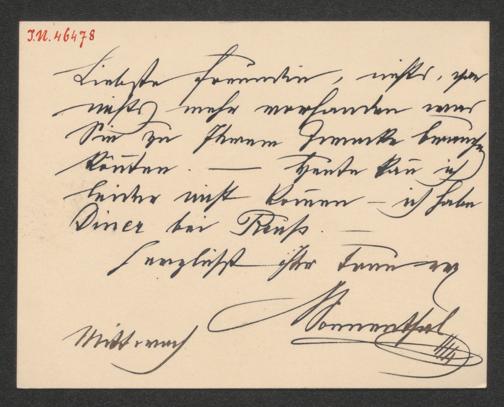 I.N. 46478
Liebste Freundin, nichts, gar
nichts mehr vorhanden was
Sie zu Ihrem Zwecke brauchen
könten. — Heute kan ich
leider nicht komen — ich habe
Diner bei
herzlichst Ihr
Sonnenthal
Mittwoch